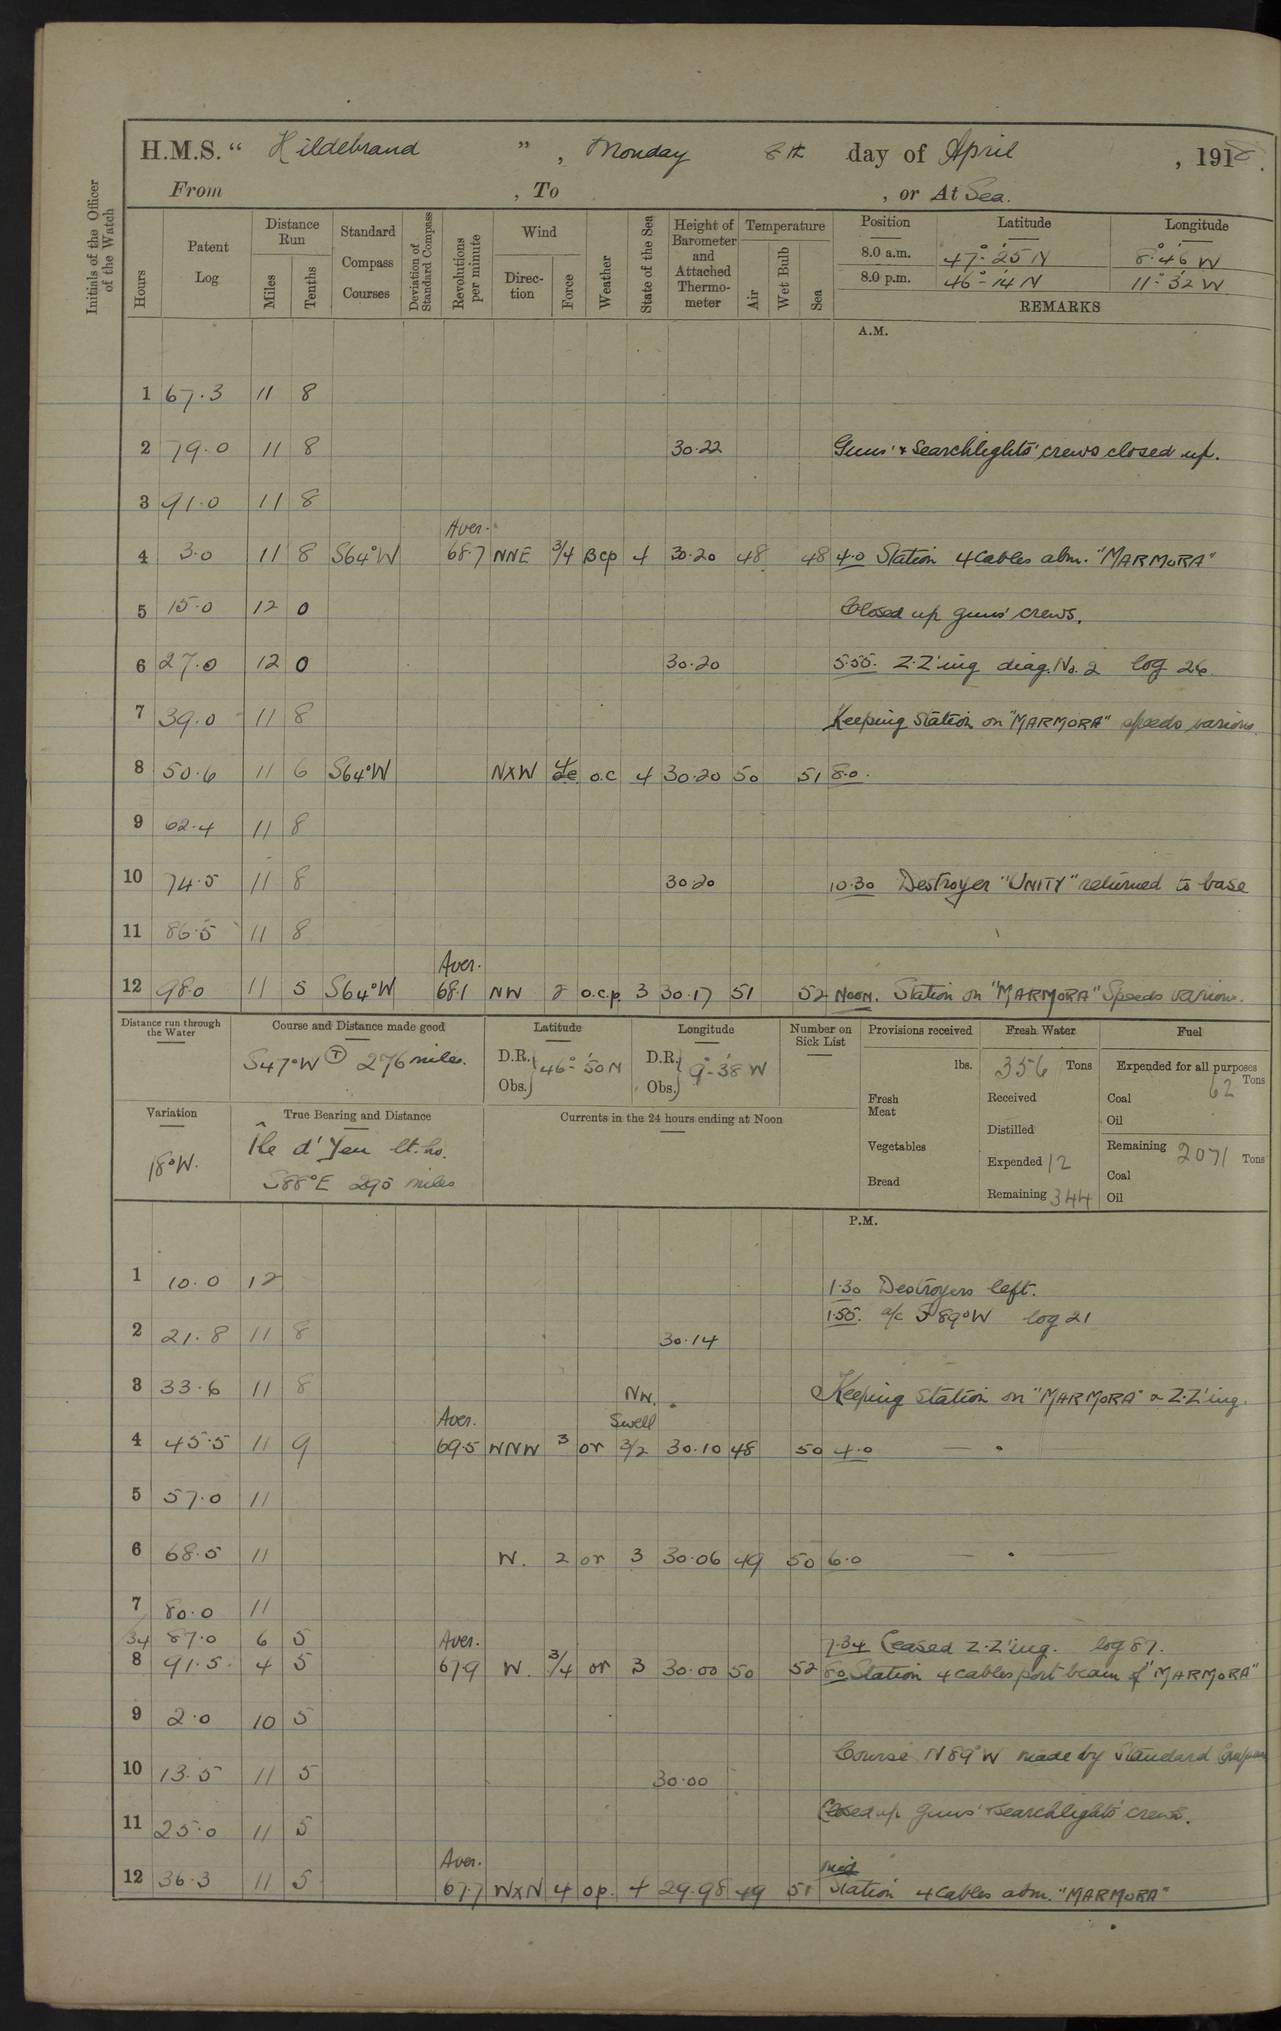 H.M.S. “ Hildebrand ” , Monday 8th day of April , 1918.
From , To , or At Sea.
Initials of the Officer of the Watch
Hours
Patent Log
Distance Run
Miles
Tenths
Standard Compass Courses
Deviation of Standard Compass
Revolutions per minute
Wind
Direction
Force
Weather
State of the Sea
Height of Barometer and Attached Thermometer
Temperature
Air
Wet Bulb
Sea
Position Latitude Longitude
8.0 a.m. 47°-25'N 8°-46'W
8.0 p.m. 46°-14'N 11°-32'W
REMARKS
A.M.
1 67.3 11 8
2 79.0 11 8 30.22 Guns' & Searchlights' crews closed up.
3 91.0 11 8
Aver.
4 3.0 11 8 S64°W 68.7 NNE 3/4 Bcp 4 30.20 48 48 4.0 Station 4 Cables abm. "MARMORA"
5 15.0 12 0 Closed up guns' crews.
6 27.0 12 0 30.20 5.55. Z.Z'ing diag. No. 2 log 26
7 39.0 11 8 Keeping Station on "MARMORA" speeds various.
8 50.6 11 6 S64°W NXW o.c 4 30.20 50 51 8.0.
9 62.4 11 8
10 74.5 11 8 30.20 10.30 Destroyer "UNITY" returned to base
11 86.5 11 8
Aver.
12 98.0 11 5 S64°W 68.1 NW 2 o.c.p. 3 30.17 51 52 NOON. Station on "MARMORA" Speeds various.
Distance run through the Water
Course and Distance made good
S47°W (T) 276 miles.
Latitude
D.R. Obs. 46°-50'N
Longitude
D.R. Obs. 9°-38'W
Number on Sick List
Provisions received
lbs.
Fresh Meat
Vegetables
Bread
Fresh Water
356 Tons
Received
Distilled
Expended 12
Remaining 344
Fuel
Expended for all purposes
62 Tons
Coal
Oil
Remaining 2071 Tons
Coal
Oil
Variation
18°W.
True Bearing and Distance
Île d'Yeu lt. ho.
S88°E 295 miles
Currents in the 24 hours ending at Noon
P.M.
1 10.0 12
1.30 Destroyers left.
1.55. a/c S89°W log 21
2 21.8 11 8 30.14
3 33.6 11 8 Keeping Station on "MARMORA" & Z.Z'ing.
NW.
Aver. Swell
4 45.5 11 9 69.5 WNW 3 or 3/2 30.10 48 50 4.0 — .
5 57.0 11
6 68.5 11 W. 2 or 3 30.06 49 50 6.0 — .
7 80.0 11
34 87.0 6 5 Aver. 7.34 Ceased Z.Z'ing. log 87.
8 91.5 4 5 67.9 W. 3/4 or 3 30.00 50 52 8.0 Station 4 cables port beam of "MARMORA"
9 2.0 10 5
Course N89°W made by Standard Compass
10 13.5 11 5 30.00
Closed up guns' & searchlights' crews.
11 25.0 11 5
Aver. mid
12 36.3 11 5 67.7 WXN 4 op. 4 29.98 49 51 Station 4 Cables abm. "MARMORA"